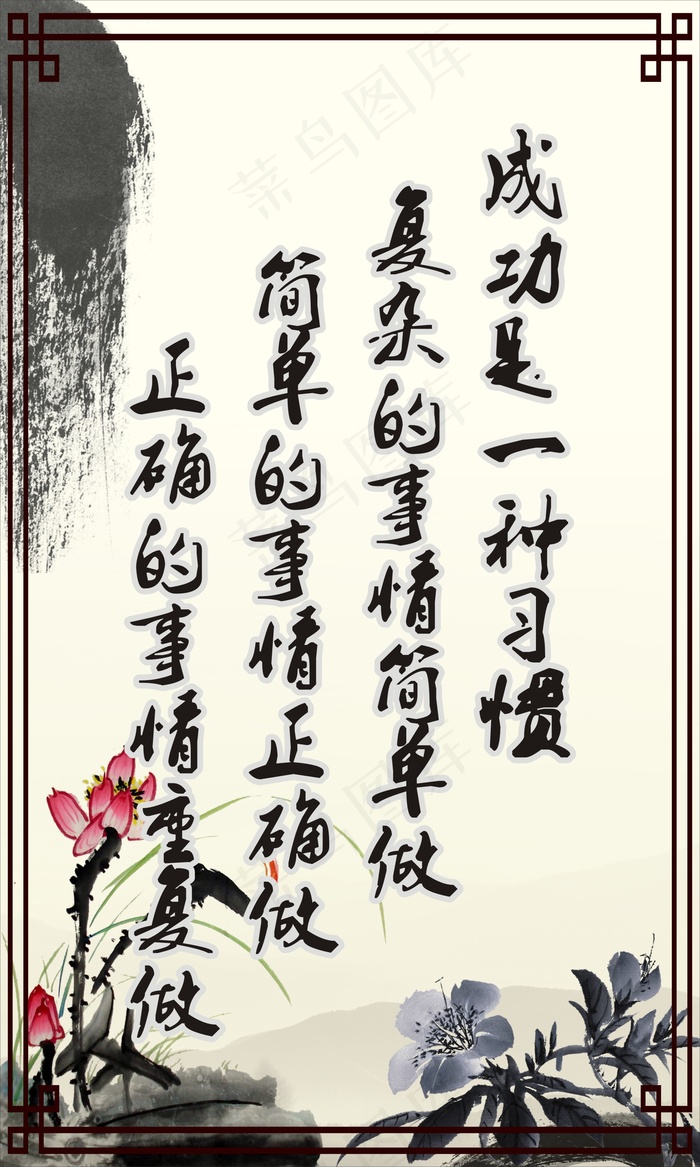 成功是一种习惯
复杂的事情简单做
简单的事情正确做
正确的事情重复做
菜鸟图库
菜鸟图库
菜鸟图库